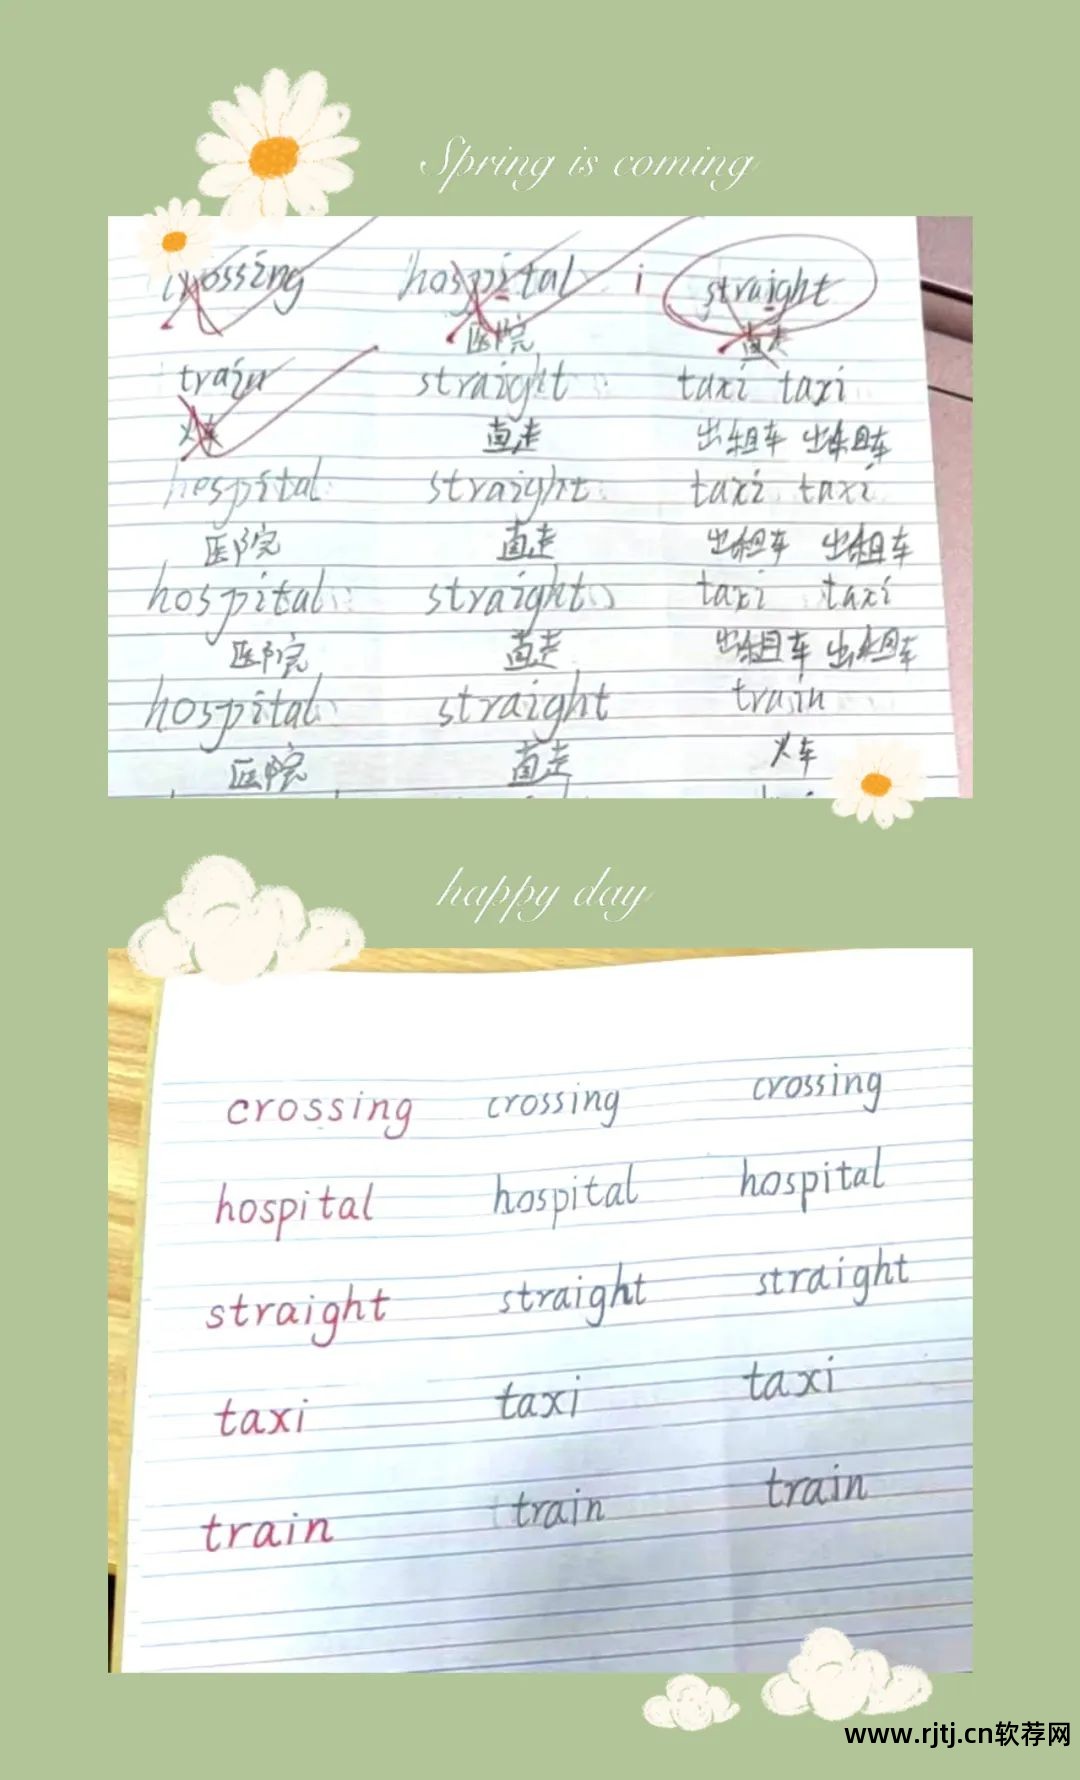 Spring is coming
crossing hospital i straight
医院 直走
train straight taxi taxi
火车 直走 出租车 出租车
hospital straight taxi taxi
医院 直走 出租车 出租车
hospital straight taxi taxi
医院 直走 出租车 出租车
hospital straight train
医院 直走 火车
happy day
crossing crossing crossing
hospital hospital hospital
straight straight straight
taxi taxi taxi
train train train
www.rjtj.cn软荐网